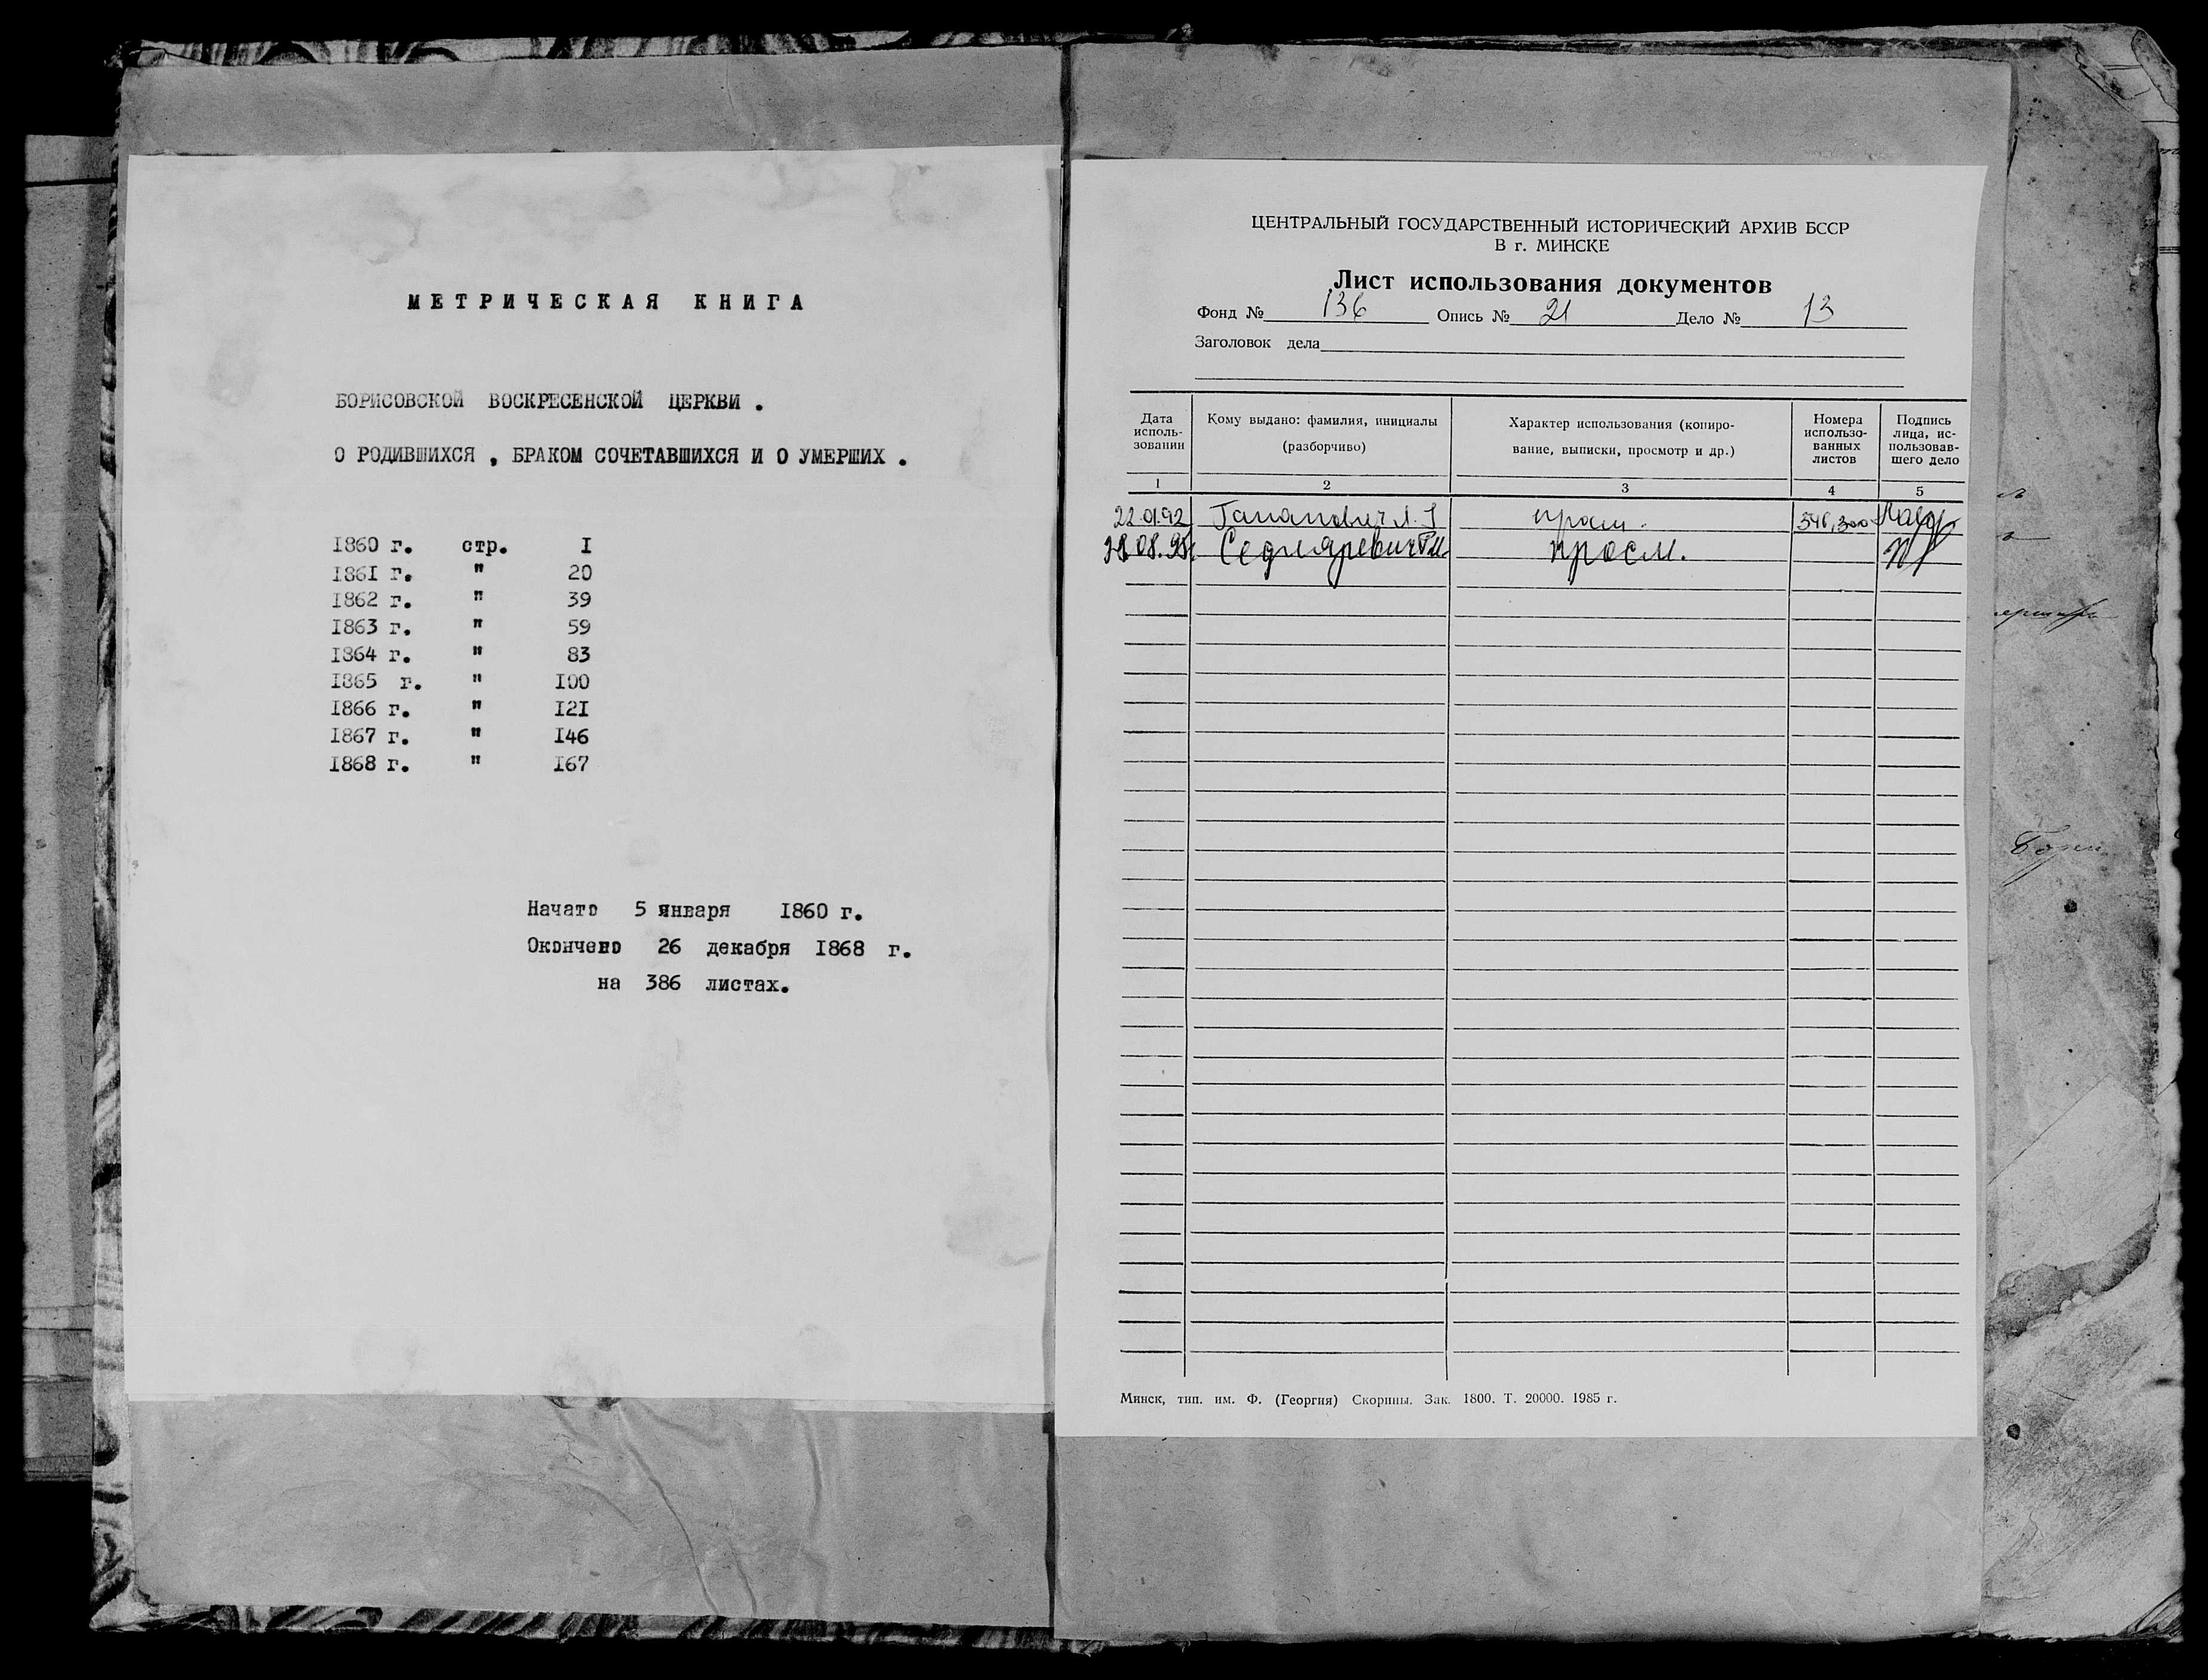 МЕТРИЧЕСКАЯ КНИГА
БОРИСОВСКОЙ ВОСКРЕСЕНСКОЙ ЦЕРКВИ .
О РОДИВШИХСЯ , БРАКОМ СОЧЕТАВШИХСЯ И О УМЕРШИХ .
I860 г. стр. I
I86I г. " 20
I862 г. " 39
I863 г. " 59
I864 г. " 83
I865 г. " I00
I866 г. " I2I
I867 г. " I46
I868 г. " I67
Начато 5 января I860 г.
Окончено 26 декабря I868 г.
на 386 листах.
ЦЕНТРАЛЬНЫЙ ГОСУДАРСТВЕННЫЙ ИСТОРИЧЕСКИЙ АРХИВ БССР
В г. МИНСКЕ
Лист использования документов
Фонд № 136 Опись № 21 Дело № 13
Заголовок дела
Дата
исполь-
зовании
Кому выдано: фамилия, инициалы
(разборчиво)
Характер использования (копиро-
вание, выписки, просмотр и др.)
Номера
использо-
ванных
листов
Подпись
лица, ис-
пользовав-
шего дело
1 2 3 4 5
22.01.92 Гапанович просм.
08.95 Седляревич просм.
Минск, тип. им. Ф. (Георгия) Скорины. Зак. 1800. Т. 20000. 1985 г.